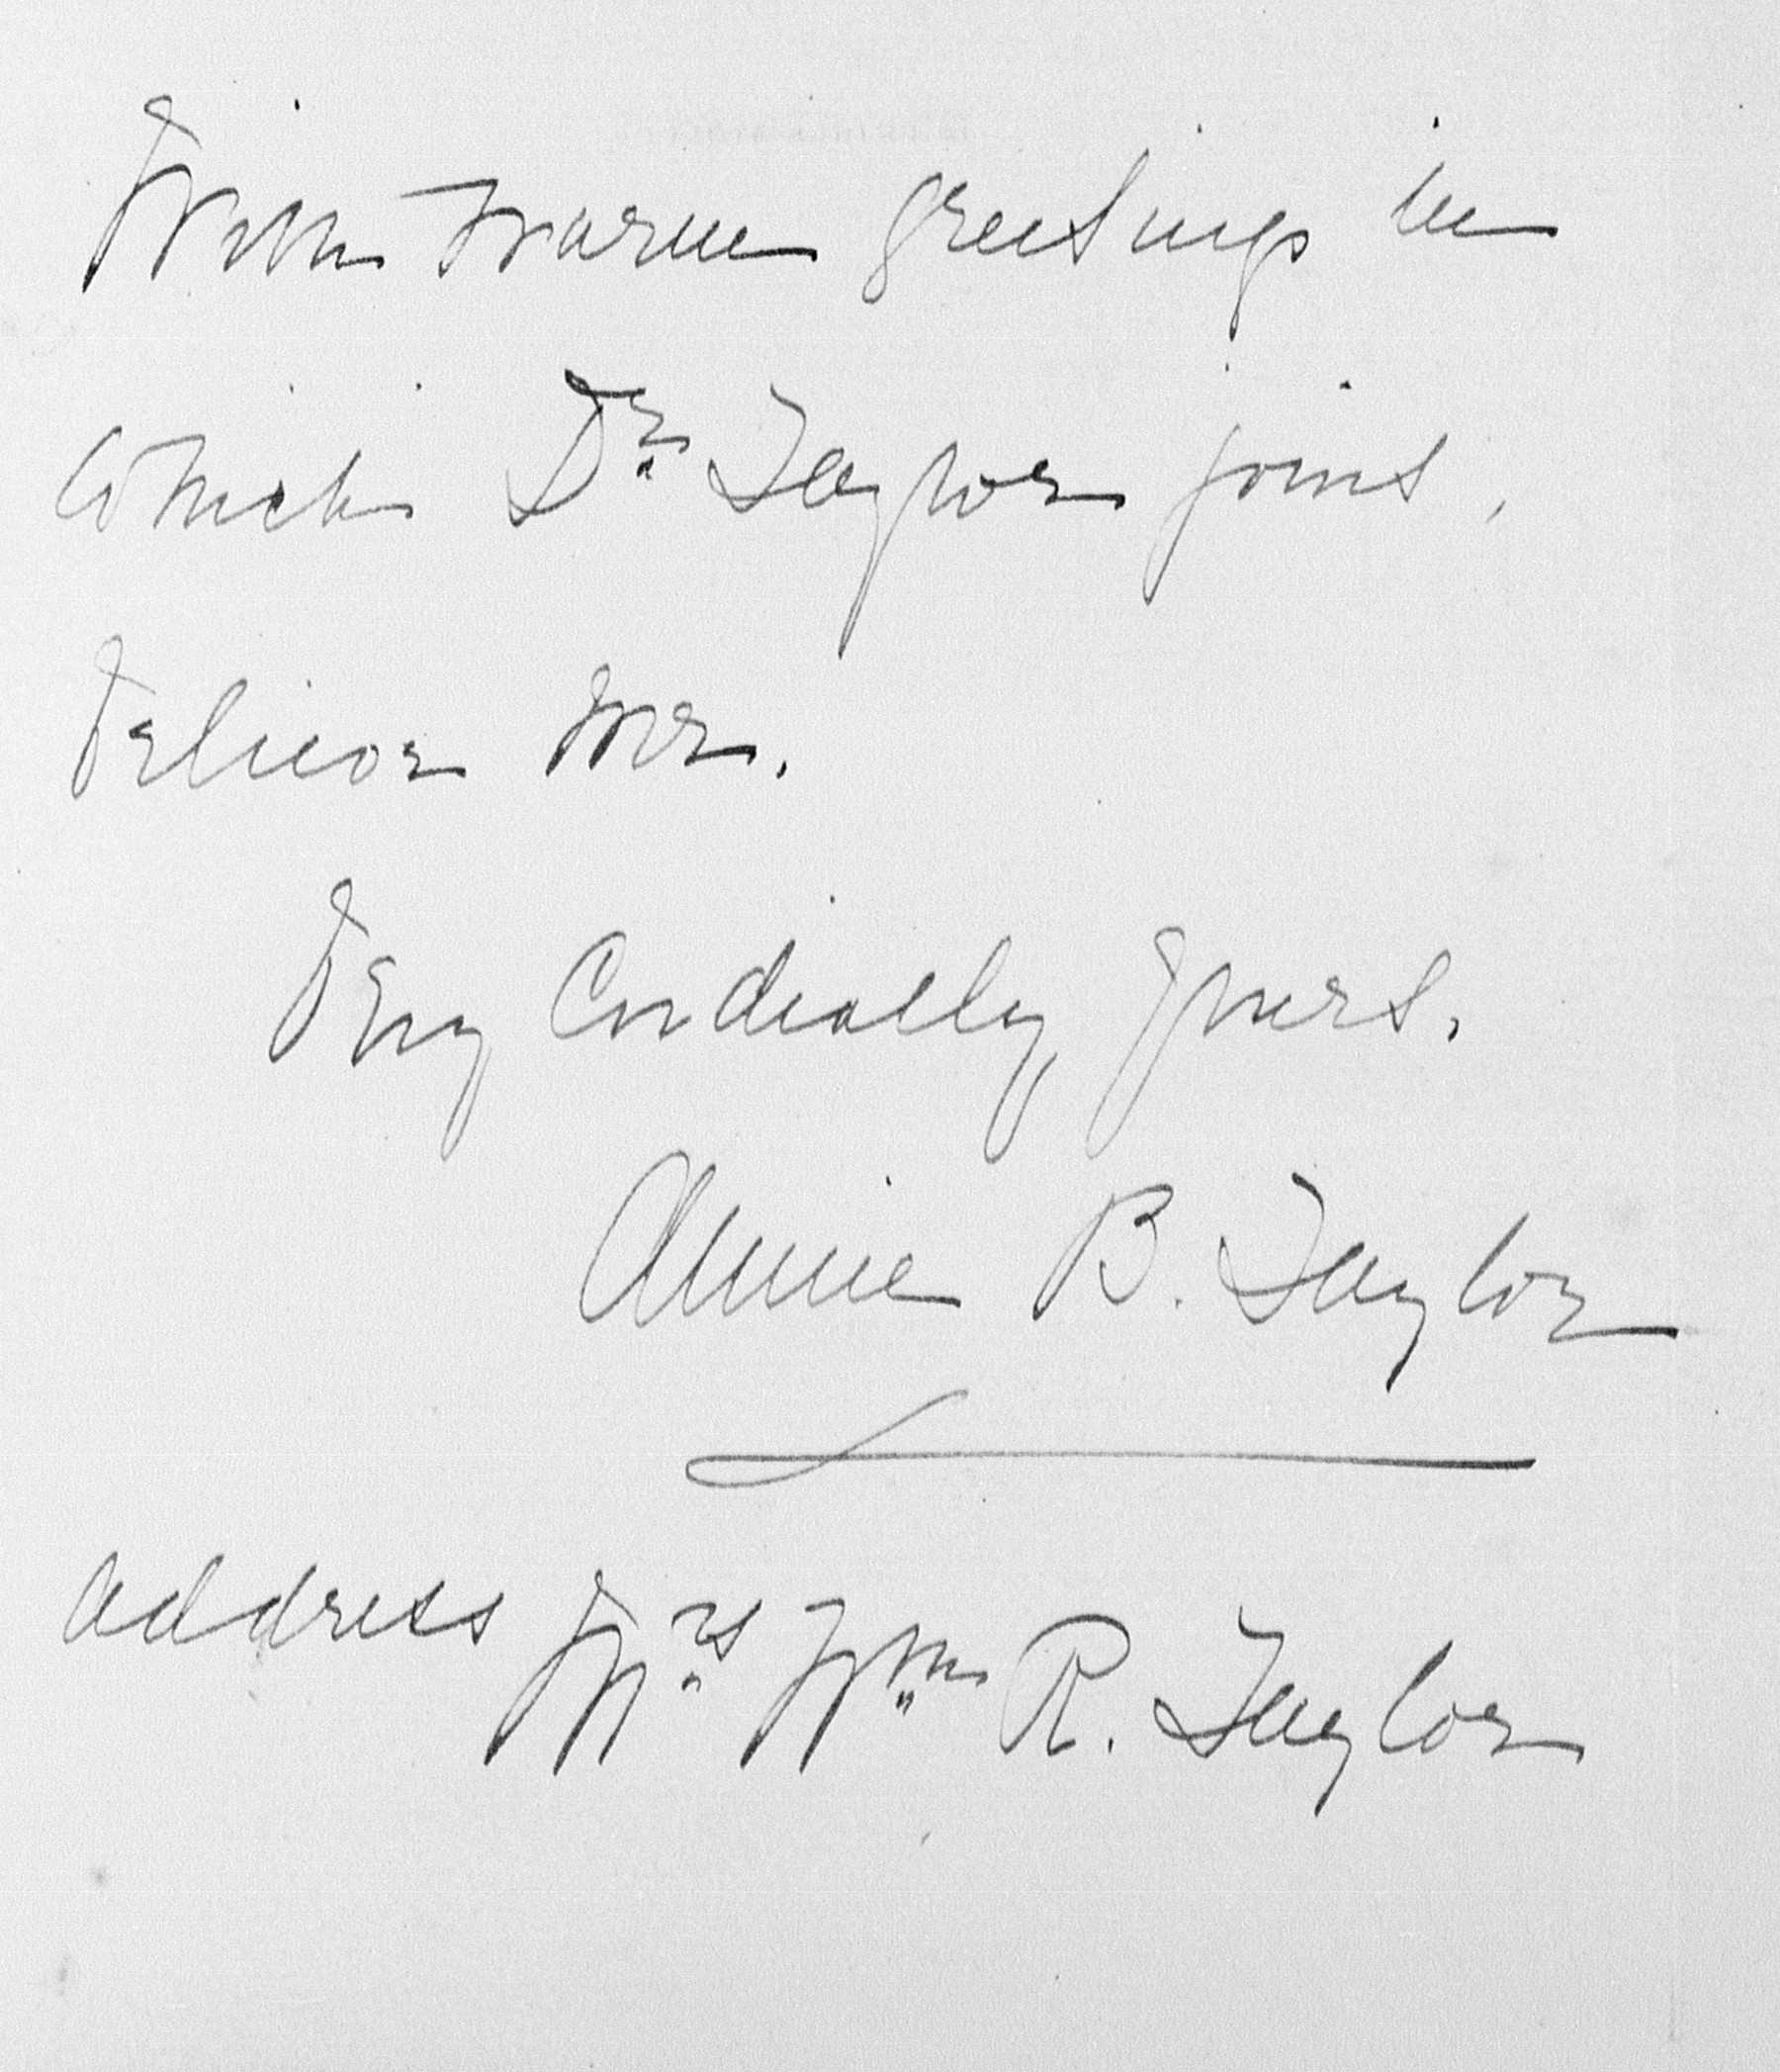 With warm greetings in
which Dr. Taylor joins,
Believe me.
Very Cordially, yours.
Annie B. Taylor
address Mrs. Wm. R. Taylor